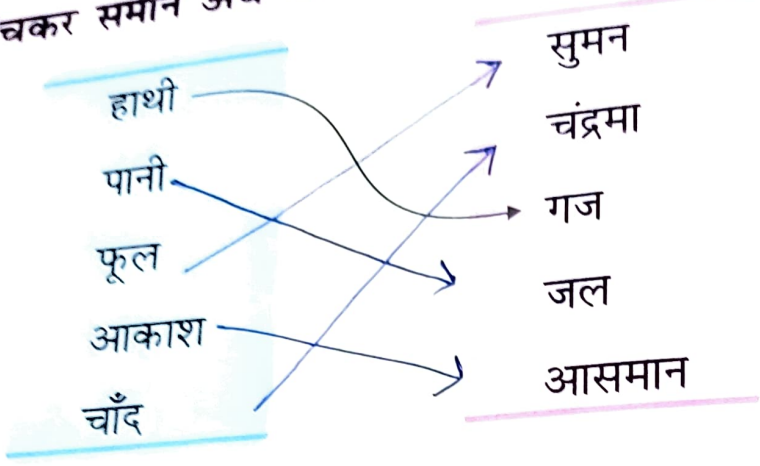 चकर समान
हाथी
पानी
फूल
आकाश
चाँद
सुमन
चंद्रमा
गज
जल
आसमान